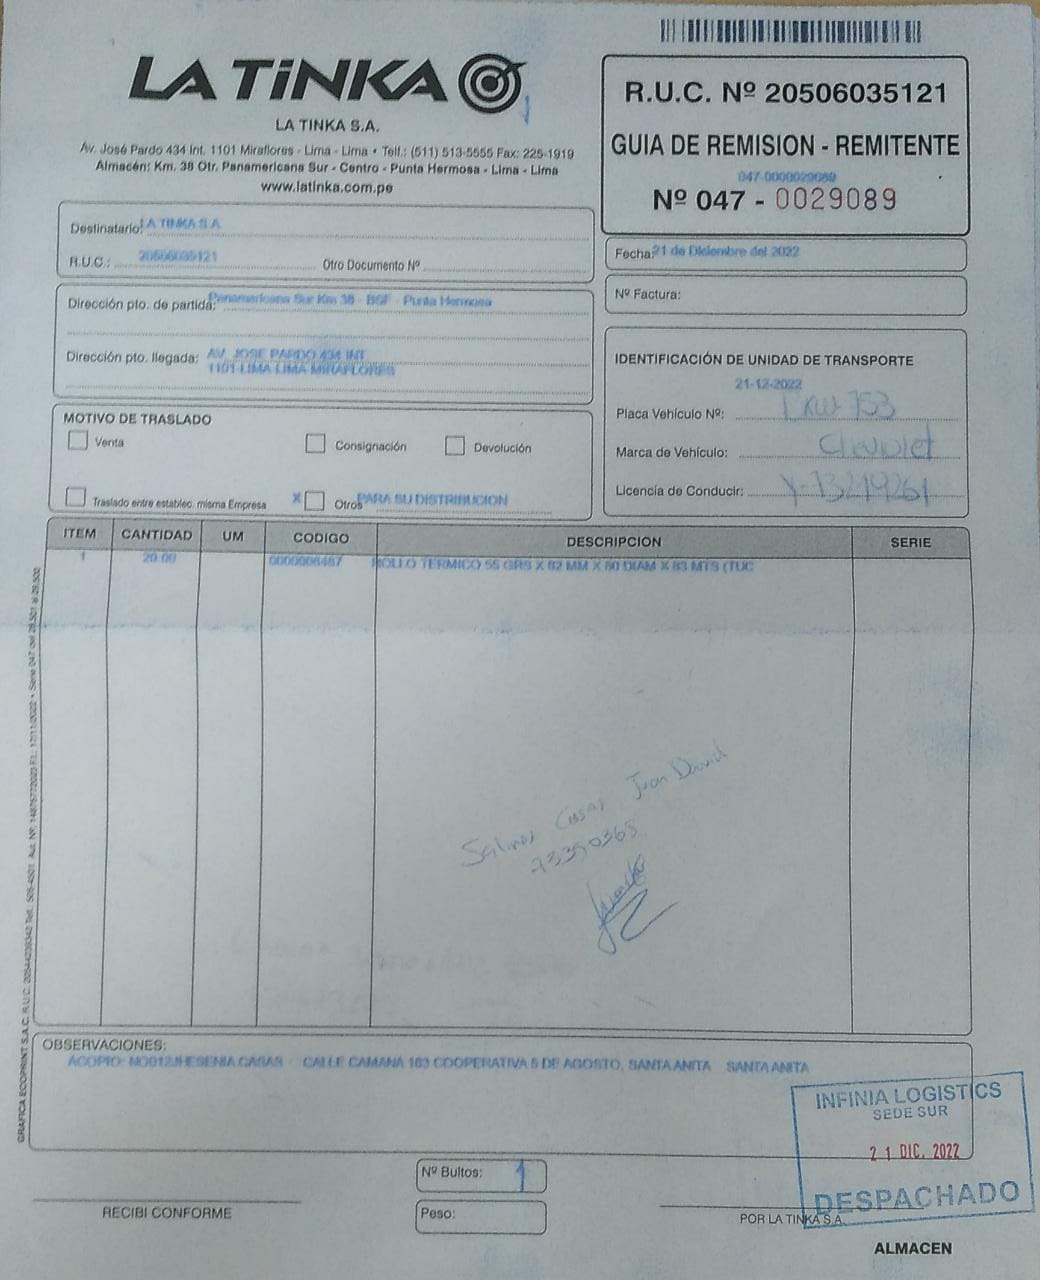 LA TiNKA
LA TINKA S.A.
Av. José Pardo 434 Int. 1101 Miraflores - Lima - Lima • Telf.: (511) 513-5555 Fax: 225-1919
Almacén: Km. 38 Otr. Panamericana Sur - Centro - Punta Hermosa - Lima - Lima
www.latinka.com.pe
R.U.C. Nº 20506035121
GUIA DE REMISION - REMITENTE
047-0000029089
Nº 047 - 0029089
Destinatario: LA TINKA S A
R.U.C.: 20506035121 Otro Documento Nº
Fecha: 21 de Diciembre del 2022
Nº Factura:
Dirección pto. de partida: Panamericana Sur Km 38 - BSF - Punta Hermosa
Dirección pto. llegada: AV. JOSE PARDO 434 INT
1101-LIMA LIMA MIRAFLORES
IDENTIFICACIÓN DE UNIDAD DE TRANSPORTE
21-12-2022
Placa Vehículo Nº: 753
Marca de Vehículo: Chevrolet
Licencia de Conducir: Y-73219261
MOTIVO DE TRASLADO
Venta Consignación Devolución
Traslado entre establec. misma Empresa X Otros PARA SU DISTRIBUCION
ITEM CANTIDAD UM CODIGO DESCRIPCION SERIE
1 20.00 0000006487 ROLLO TERMICO 55 GRS X 82 MM X 80 DIAM X 83 MTS (TUC
Salinas Casas Juan David
73390365
OBSERVACIONES:
ACOPIO- NO012JHESENIA CASAS - CALLE CAMANA 163 COOPERATIVA 5 DE AGOSTO, SANTA ANITA SANTA ANITA
INFINIA LOGISTICS
SEDE SUR
21 DIC. 2022
DESPACHADO
Nº Bultos: 1
Peso:
RECIBI CONFORME
POR LA TINKA S.A.
ALMACEN
GRAFICA ECOPRINT S.A.C.